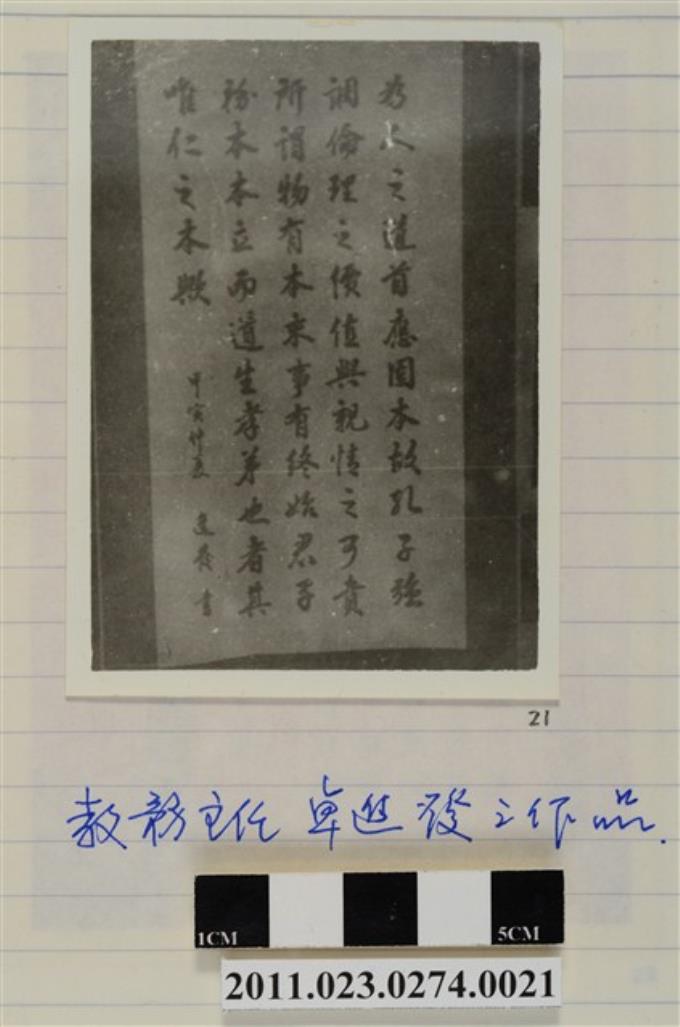 為人之道首應固本故孔子強
調倫理之價值與親情之可貴
所謂物有本末事有終始君子
務本本立而道生孝弟也者其
唯仁之本歟
甲寅仲夏 進發書
21
教務主任 卓進發之作品.
1CM 5CM
2011.023.0274.0021